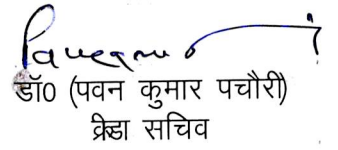 डॉ0 (पवन कुमार पचौरी)
क्रेडा सचिव